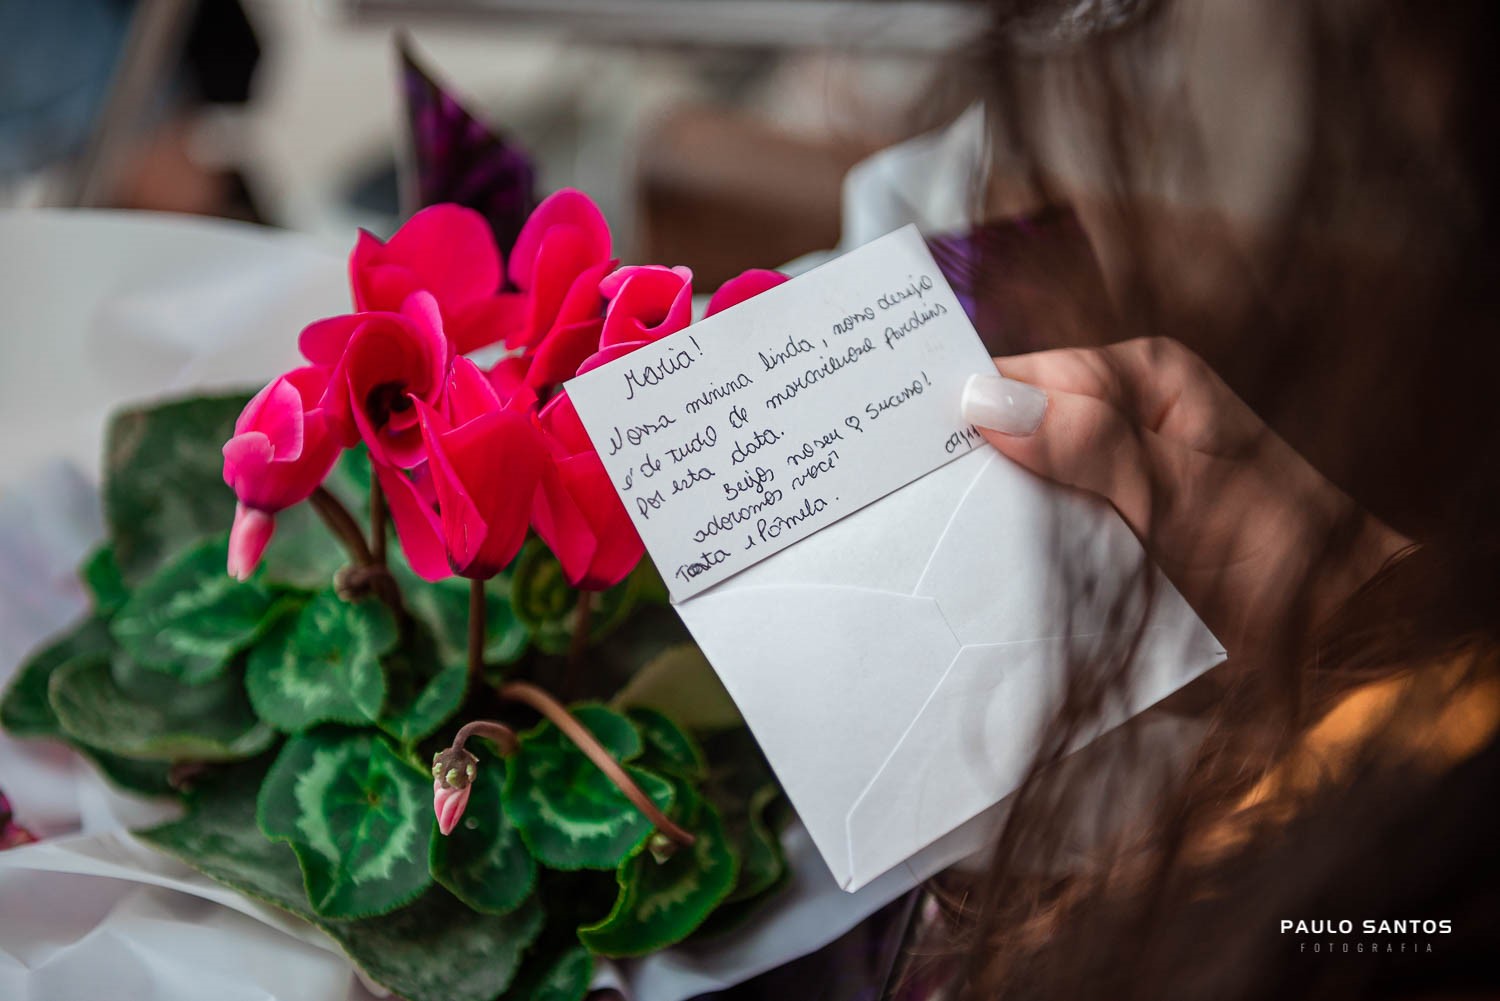 Maria!
Nossa menina linda, nosso desejo
é de tudo de maravilhoso Parabéns
por esta data.
Beijos no seu ♡ Sucesso!
adoramos você!
Tata e Pâmela.
09/11
PAULO SANTOS
FOTOGRAFIA